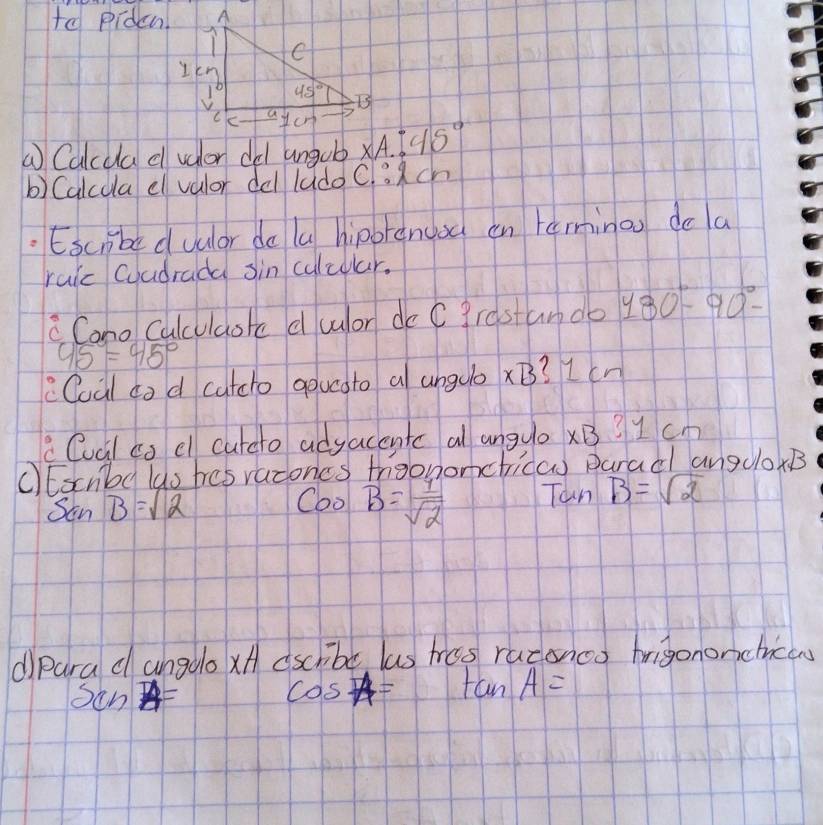 te piden.
A
c
1cm
b
45°
B
C
a 1cm
a) Calcula el valor del angulo ∡A.: 45°
b) Calcula el valor del lado C.: 2 cm
• Escribe el valor de la hipotenusa en terminos de la
raíz Cuadrada sin calcular.
¿Como Calculaste el valor de C? restando 180°- 90°-
45 = 45°
¿Cuál es el cateto opuesto al angulo ∡B? 1 cm
¿Cuál es el cateto adyacente al angulo ∡B? 1 cm
C) Escribe las tres razones trigonometricas para el angulo ∡B
Sen B = √2 Cos B = 1/√2 Tan B = √2
d) Para el angulo ∡A escribe las tres razones trigonometricas
Sen A= cos A= tan A =